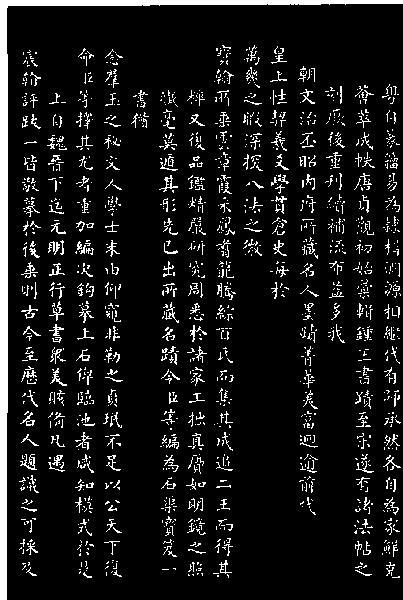 粤自篆籀易為隸楷淵源相繼代有師承然各自為家鮮克
薈萃成帙唐貞觀初始彙輯鍾王書蹟至宋遂有諸法帖之
刻厥後重刊續補流布益多我
朝文治丕昭内府所藏名人墨蹟菁華美富迥逾前代
皇上性耽羲文學貫倉史每於
萬幾之暇深探八法之微
寶翰所垂雲章霞采鳳翥龍騰綜百氏而集其成追二王而得其
粹又復品鑑精嚴研究周悉於諸家工拙真贗如明鏡之照
纖毫莫遁其形先已出所藏名蹟令臣等編為石渠寶笈一
書猶
念羣玉之秘文人學士末由仰窺非勒之貞珉不足以公天下復
命臣等擇其尤者重加編次鉤摹上石俾臨池者咸知模式於是
上自魏晉下迄元明正行草書眾美賅備凡遇
宸翰評跋一皆敬摹於後垂則古今至歷代名人題識之可採及